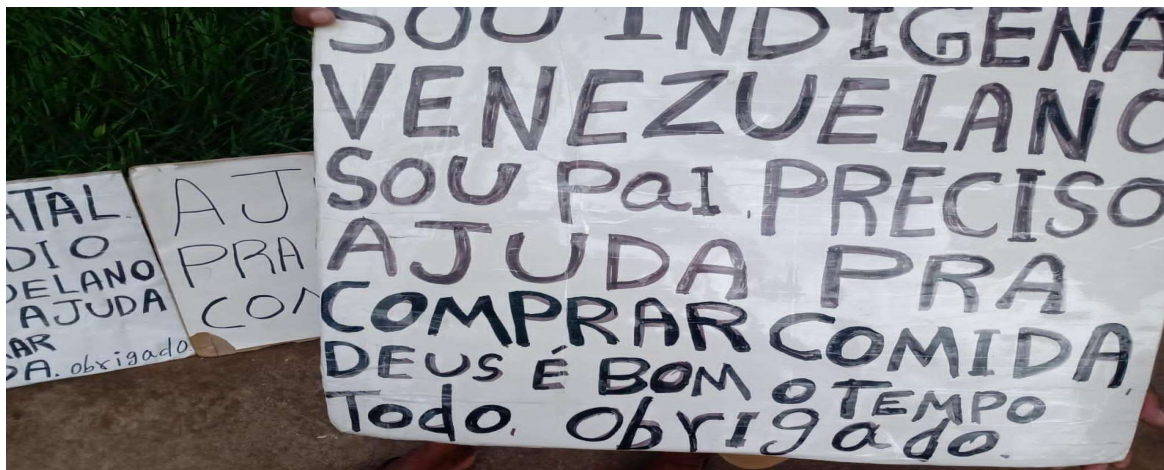 ATAL.
DIO
ELANO
AJUDA
AR
DA. obrigado
AJ
PRA
CO
SOU INDIGENA
VENEZUELANO
SOU PaI. PRECISO
AJUDA PRA
COMPRAR COMIDA.
DEUS É BOM O TEMPO
Todo. ObrIgado.